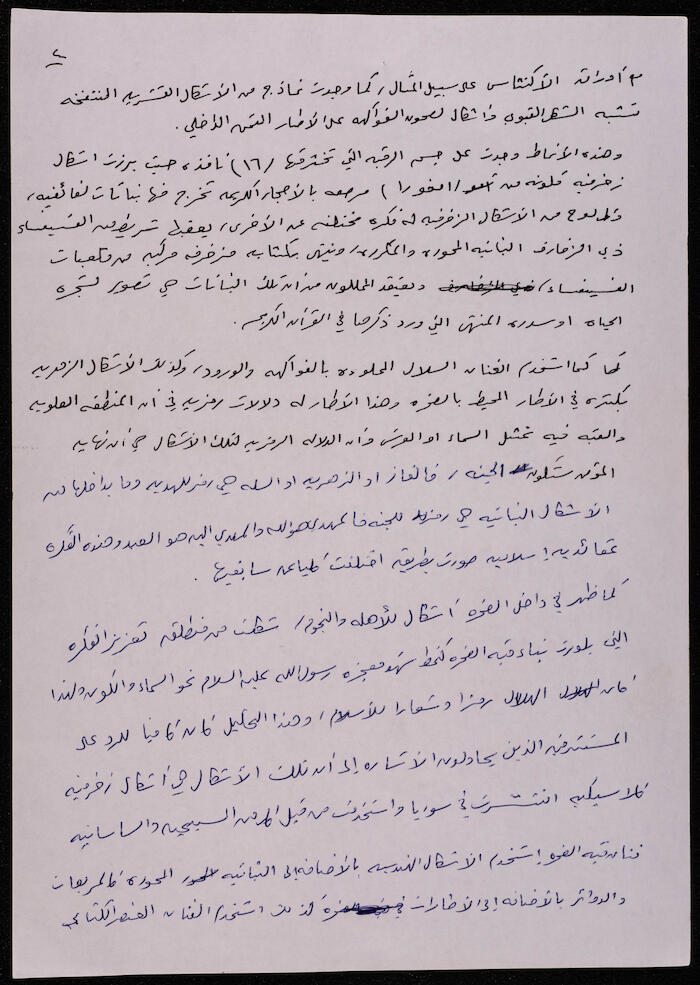 ٢
مع أوراق الأكنثاس على سبيل المثال، كما وجدت نماذج من الأشكال القشرية المنتفخة
تشبه الشكل القبوي وأشكال لصحون الفواكه على الإطار الضمن الداخلي.
وهذه الأنماط وجدت على جسم الرقبة التي تخترقها (١٦) نافذة، حيث برزت أشكال
زخرفية ملونة من (أمفورا) مرصعة بالأحجار الكريمة تخرج منها نباتات لفائفية،
وكل لوح من الأشكال الزخرفية له فكرة مختلفة عن الأخرى، يعقبها شريط من الفسيفساء
ذي الزخارف النباتية المحورة والمكررة، وينتهي بكتابة مزخرفة مركبة من مكعبات
الفسيفساء، ويعتقد المحللون من أن تلك النباتات هي تصوير لشجرة
الحياة او سدرة المنتهى التي ورد ذكرها في القرآن الكريم.
كما استخدم الفنان السلال المملوءة بالفواكه والورود، وكذلك الأشكال الزهرية
بكثرة في الإطار المحيط بالصخرة وهذا الإطار له دلالات رمزية في أن المنطقة العلوية
والقبة فيه تمثل السماء او العرش وأن الدلالة الرمزية لتلك الأشكال هي أن نهاية
المؤمن ستكون الجنة، فالفاز او الزهرية او السلة هي رمز للهدية وما بداخلها من
الأشكال النباتية هي رمز للجنة فالمهدي هو الله والمهدي اليه هو العبد وهذه الفكرة
عقائدية إسلامية صورت بطريقة اختلفت كلياً عن سابقيها.
كما ظهر في داخل الصخرة أشكال للأهلة والنجوم، شكلت من منطلق تعزيز الفكرة
التي بلورت بناء قبة الصخرة كخط شهد معجزة رسول الله عليه السلام نحو السماء والكون ولهذا
كان الهلال رمزا وشعارا للأسلام، وهذا التحليل كان كافيا للرد على
المستشرقين الذين يحاولون الأشارة إلى أن تلك الأشكال هي أشكال زخرفية
كلاسيكية انتشرت في سوريا واستخدمت من قبل كل من المسيحية والساسانية
فنان قبة الصخرة استخدم الأشكال الهندسية بالأضافة إلى النباتية المحورة كالمربعات
والدوائر بالأضافة إلى الأطارات كذلك استخدم الفنان العنصر الكتابي